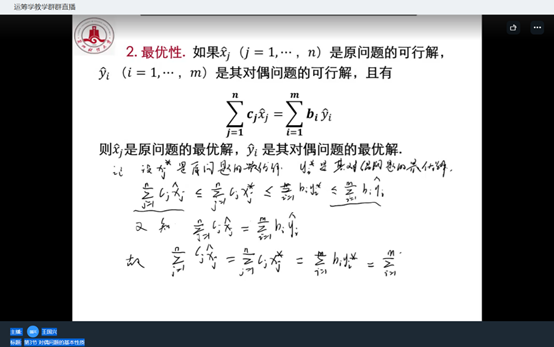 运筹学教学群群直播
2. 最优性. 如果x̂ⱼ（j = 1,⋯, n）是原问题的可行解，
ŷᵢ（i = 1,⋯, m）是其对偶问题的可行解，且有
∑ⱼ₌₁ⁿ cⱼx̂ⱼ = ∑ᵢ₌₁ᵐ bᵢŷᵢ
则x̂ⱼ是原问题的最优解，ŷᵢ 是其对偶问题的最优解.
设 xⱼ* 是原问题的最优解, yᵢ* 是其对偶问题的最优解.
∑ⱼ₌₁ⁿ cⱼx̂ⱼ ≤ ∑ⱼ₌₁ⁿ cⱼxⱼ* ≤ ∑ᵢ₌₁ᵐ bᵢyᵢ* ≤ ∑ᵢ₌₁ᵐ bᵢŷᵢ
又知 ∑ⱼ₌₁ⁿ cⱼx̂ⱼ = ∑ᵢ₌₁ᵐ bᵢŷᵢ
故 ∑ⱼ₌₁ⁿ cⱼx̂ⱼ = ∑ⱼ₌₁ⁿ cⱼxⱼ* = ∑ᵢ₌₁ᵐ bᵢyᵢ* = ∑ᵢ₌₁ᵐ
主播: 王国兴
标题: 第3节 对偶问题的基本性质